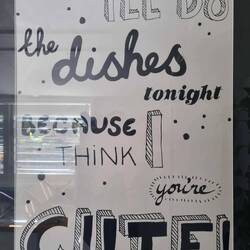 I'LL DO
the
dishes
tonight
BECAUSE I
THINK
you're
CUTE!